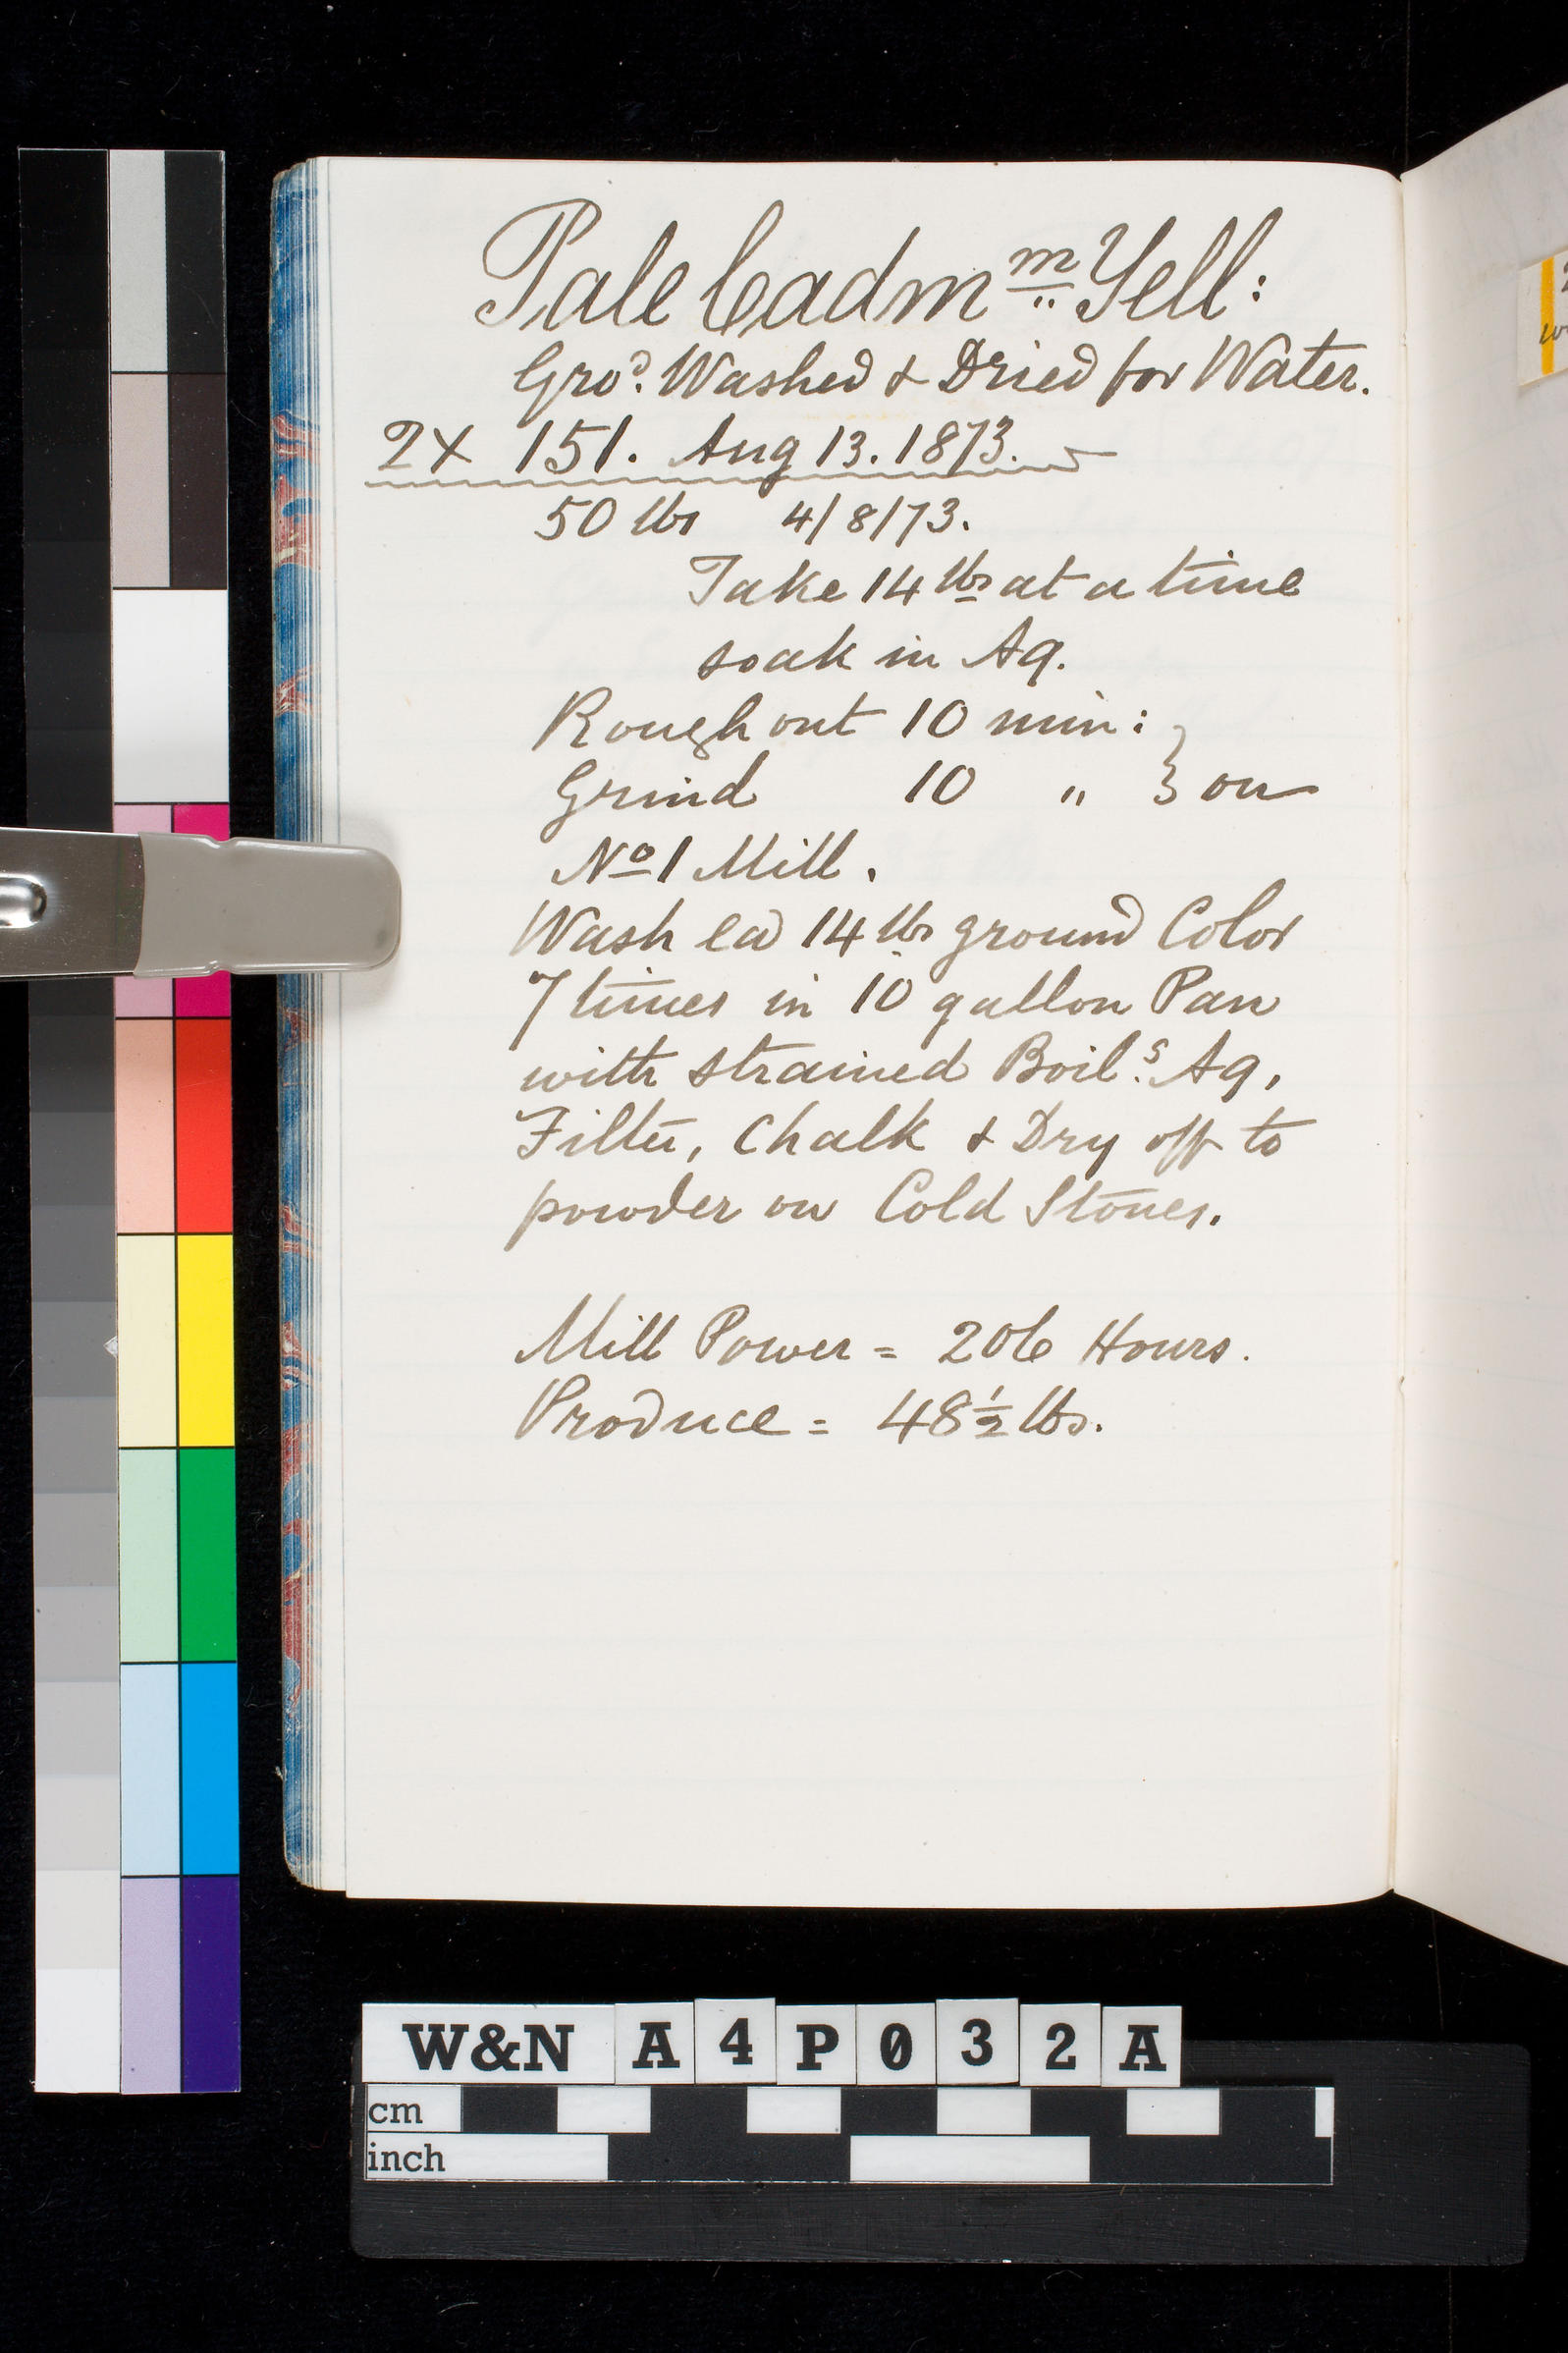 Pale Cadm^m Yell:
Gro^d. Washed & Dried for Water.
2X 151. Aug 13. 1873.
50 lbs 4/8/73.
Take 14 lbs at a time
soak in Aq.
Rough out 10 min: }
Grind 10 " } on
No 1 Mill.
Wash ea 14 lbs ground Color
7 times in 10 gallon Pan
with strained Boil^g. Aq,
Filter, Chalk & Dry off to
powder on Cold Stones.
Mill Power = 206 Hours.
Produce = 48½ lbs.
W&N A4P032A
cm
inch